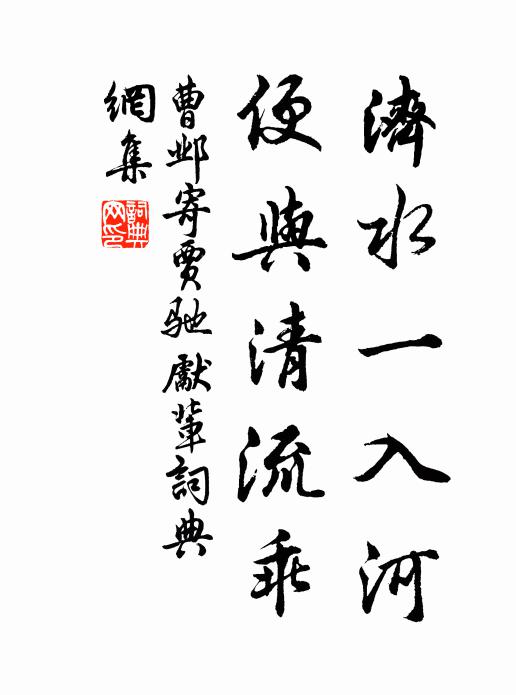 濟水一入河
便與清流乖
曹邺寄賈馳 獻輩詞典
網集
詞典
网印